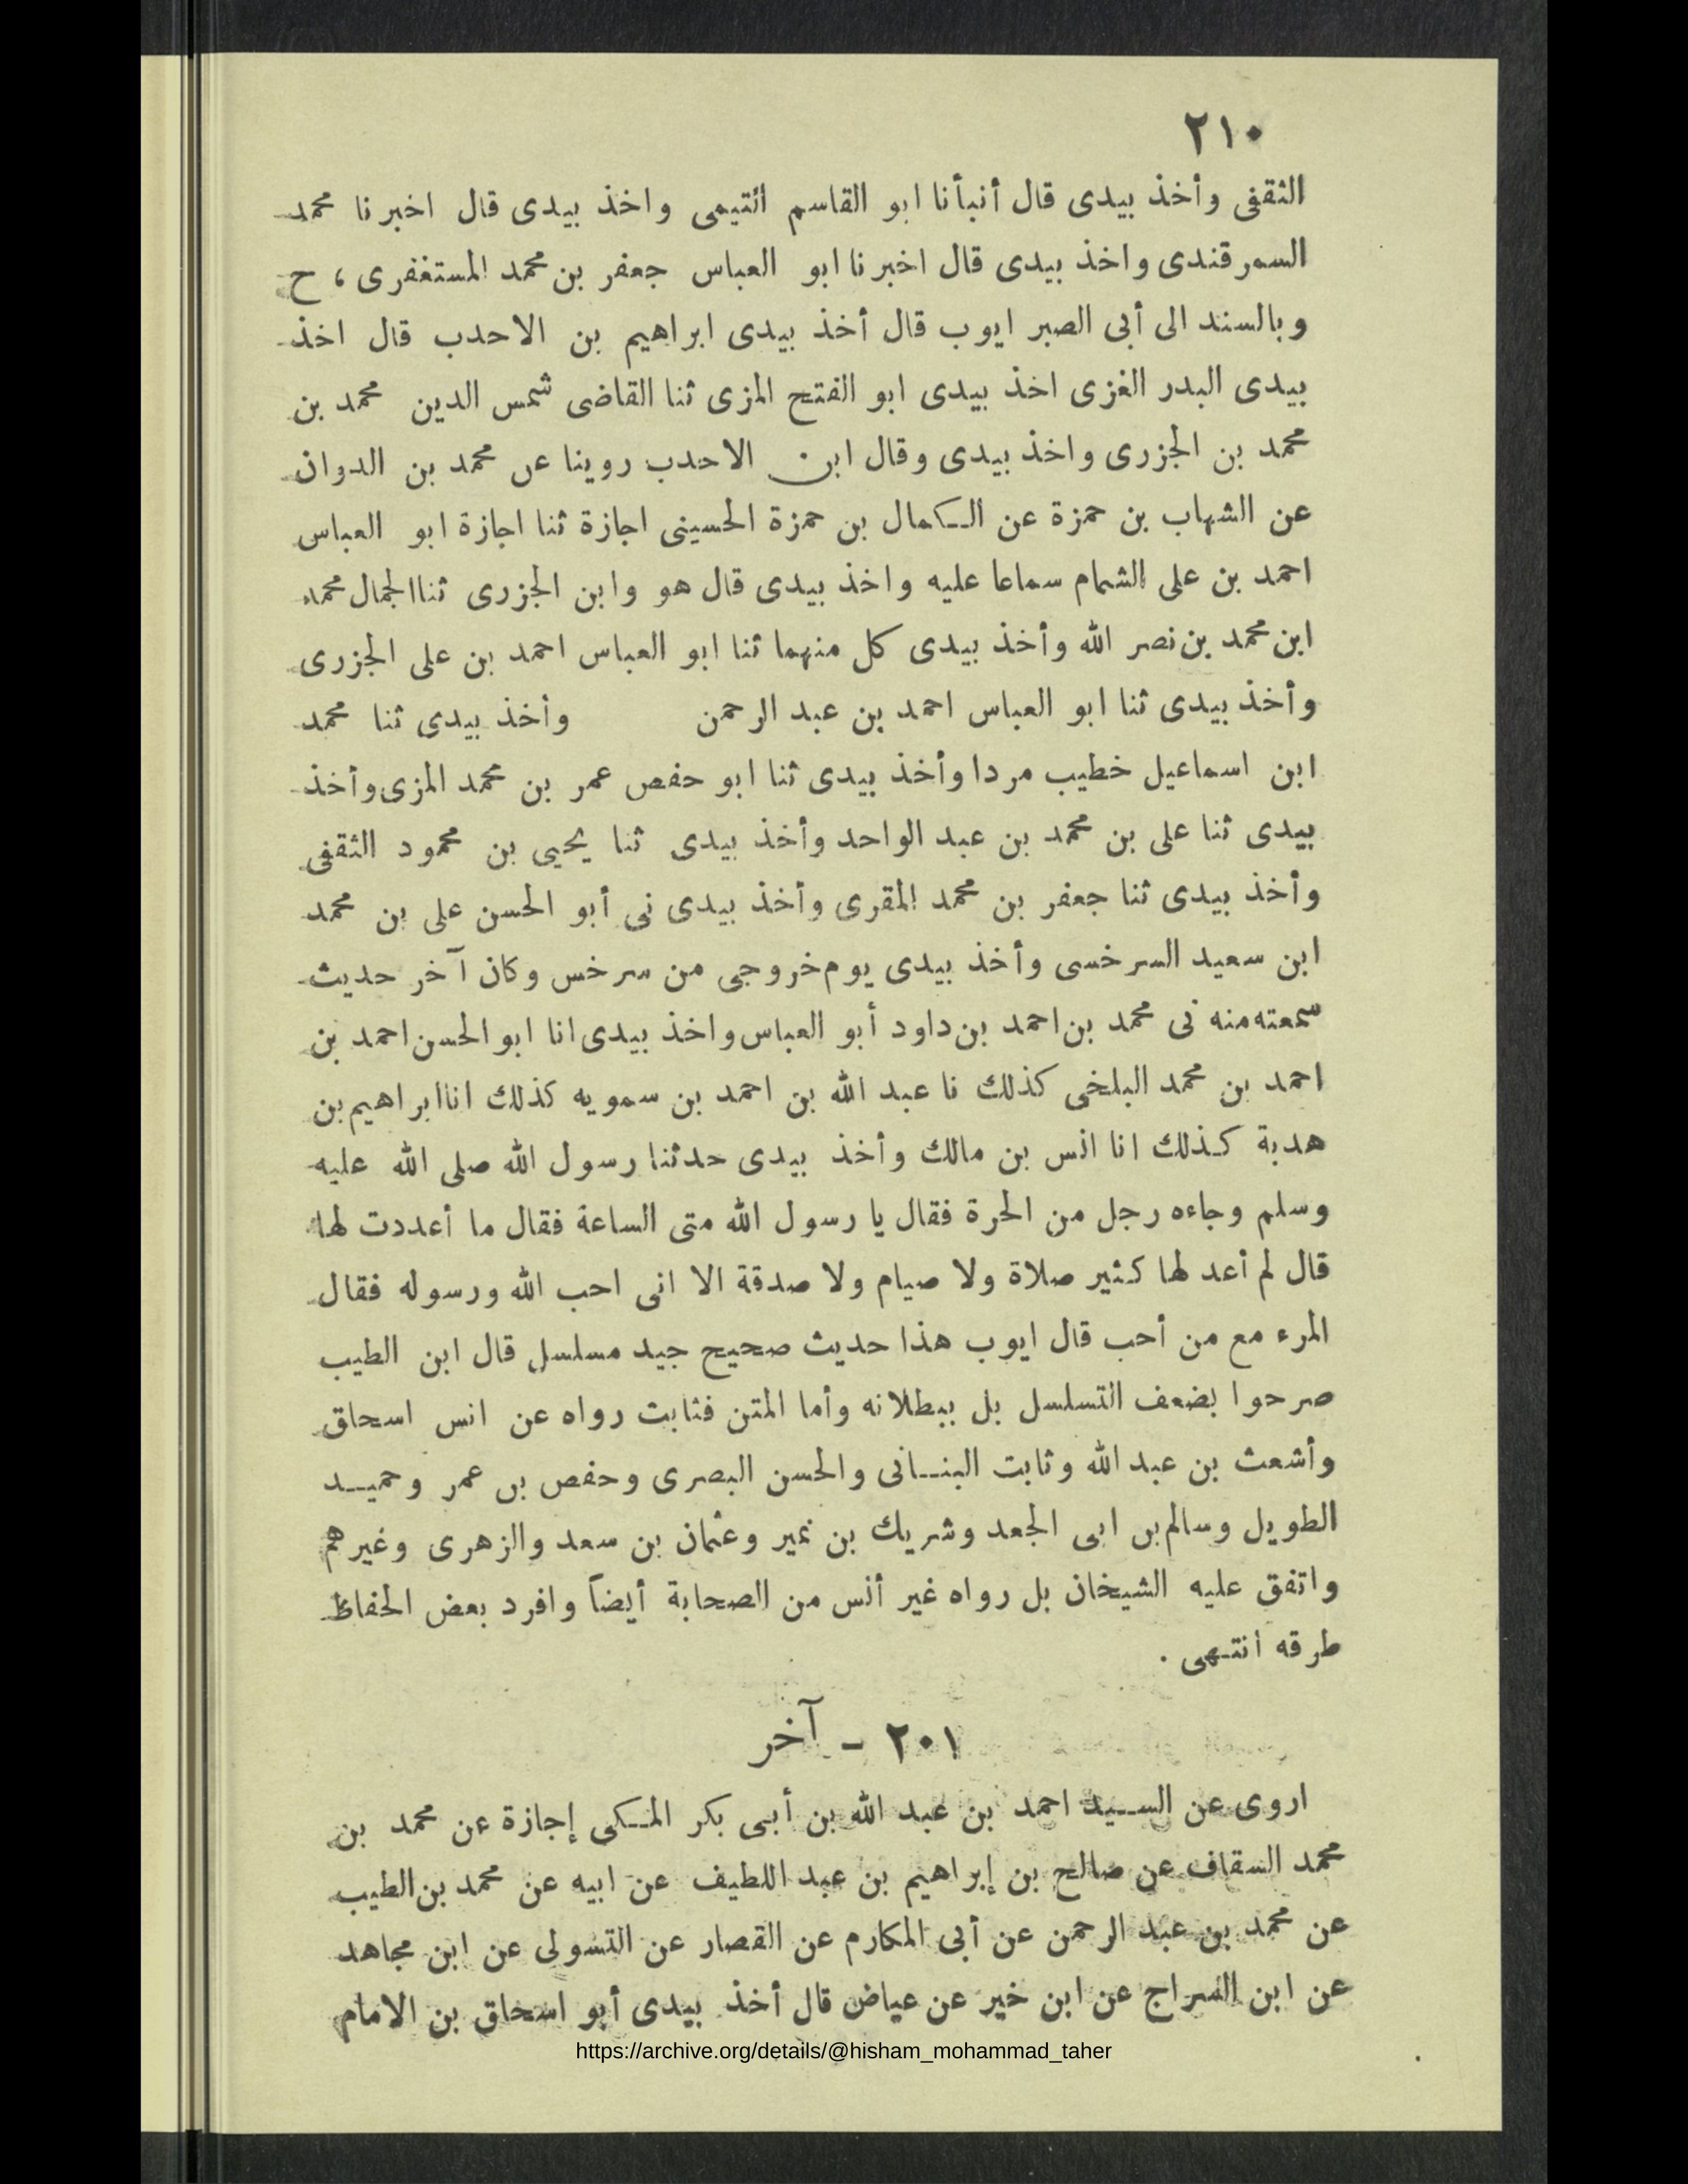 ٢١٠
الثقفى وأخذ بيدى قال أنبأنا ابو القاسم التيمى واخذ بيدى قال اخبرنا محمد
السمرقندى واخذ بيدى قال اخبرنا ابو العباس جعفر بن محمد المستغفرى ، ح
وبالسند الى أبى الصبر ايوب قال أخذ بيدى ابراهيم بن الاحدب قال اخذ
بيدى البدر الغزى اخذ بيدى ابو الفتح المزى ثنا القاضى شمس الدين محمد بن
محمد بن الجزرى واخذ بيدى وقال ابن الاحدب روينا عن محمد بن الدوان
عن الشهاب بن حمزة عن الكمال بن حمزة الحسينى اجازة ثنا اجازة ابو العباس
احمد بن على الشمام سماعا عليه واخذ بيدى قال هو وابن الجزرى ثنا الجمال محمد
ابن محمد بن نصر الله وأخذ بيدى كل منهما ثنا ابو العباس احمد بن على الجزرى
وأخذ بيدى ثنا ابو العباس احمد بن عبد الرحمن وأخذ بيدى ثنا محمد
ابن اسماعيل خطيب مردا وأخذ بيدى ثنا ابو حفص عمر بن محمد المزى وأخذ
بيدى ثنا على بن محمد بن عبد الواحد وأخذ بيدى ثنا يحيى بن محمود الثقفى
وأخذ بيدى ثنا جعفر بن محمد المقرى وأخذ بيدى نى أبو الحسن على بن محمد
ابن سعيد السرخسى وأخذ بيدى يوم خروجى من سرخس وكان آخر حديث
سمعته منه نى محمد بن احمد بن داود أبو العباس واخذ بيدى انا ابو الحسن احمد بن
احمد بن محمد البلخى كذلك نا عبد الله بن احمد بن سمويه كذلك انا ابراهيم بن
هدبة كذلك انا انس بن مالك وأخذ بيدى حدثنا رسول الله صلى الله عليه
وسلم وجاءه رجل من الحرة فقال يا رسول الله متى الساعة فقال ما أعددت لها
قال لم أعد لها كثير صلاة ولا صيام ولا صدقة الا انى احب الله ورسوله فقال
المرء مع من أحب قال ايوب هذا حديث صحيح جيد مسلسل قال ابن الطيب
صرحوا بضعف التسلسل بل ببطلانه وأما المتن فثابت رواه عن انس اسحاق
وأشعث بن عبد الله وثابت البنانى والحسن البصرى وحفص بن عمر وحميد
الطويل وسالم بن ابى الجعد وشريك بن نمير وعثمان بن سعد والزهرى وغيرهم
واتفق عليه الشيخان بل رواه غير أنس من الصحابة أيضاً وافرد بعض الحفاظ
طرقه انتهى .
٢٠١ - آخر
اروى عن السيد احمد بن عبد الله بن أبى بكر المكى إجازة عن محمد بن
محمد السقاف عن صالح بن إبراهيم بن عبد اللطيف عن ابيه عن محمد بن الطيب
عن محمد بن عبد الرحمن عن أبى المكارم عن القصار عن التسولى عن ابن مجاهد
عن ابن السراج عن ابن خير عن عياض قال أخذ بيدى أبو اسحاق بن الامام
https://archive.org/details/@hisham_mohammad_taher